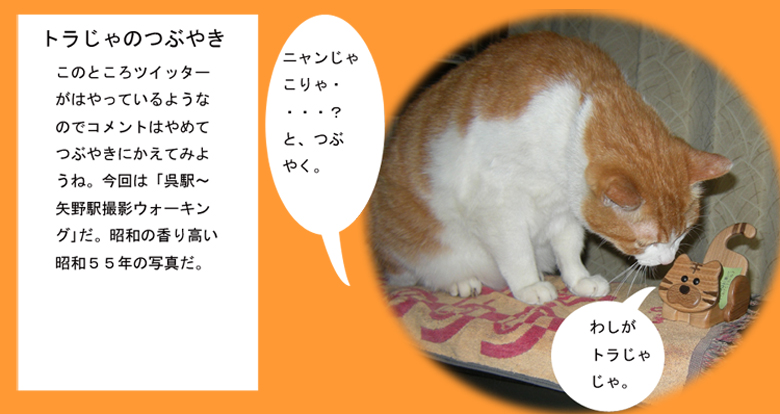 トラじゃのつぶやき
このところツイッター
がはやっているような
のでコメントはやめて
つぶやきにかえてみよ
うね。今回は「呉駅～
矢野駅撮影ウォーキン
グ」だ。昭和の香り高い
昭和５５年の写真だ。
ニャンじゃ
こりゃ・
・・・？
と、つぶ
やく。
わしが
トラじゃ
じゃ。